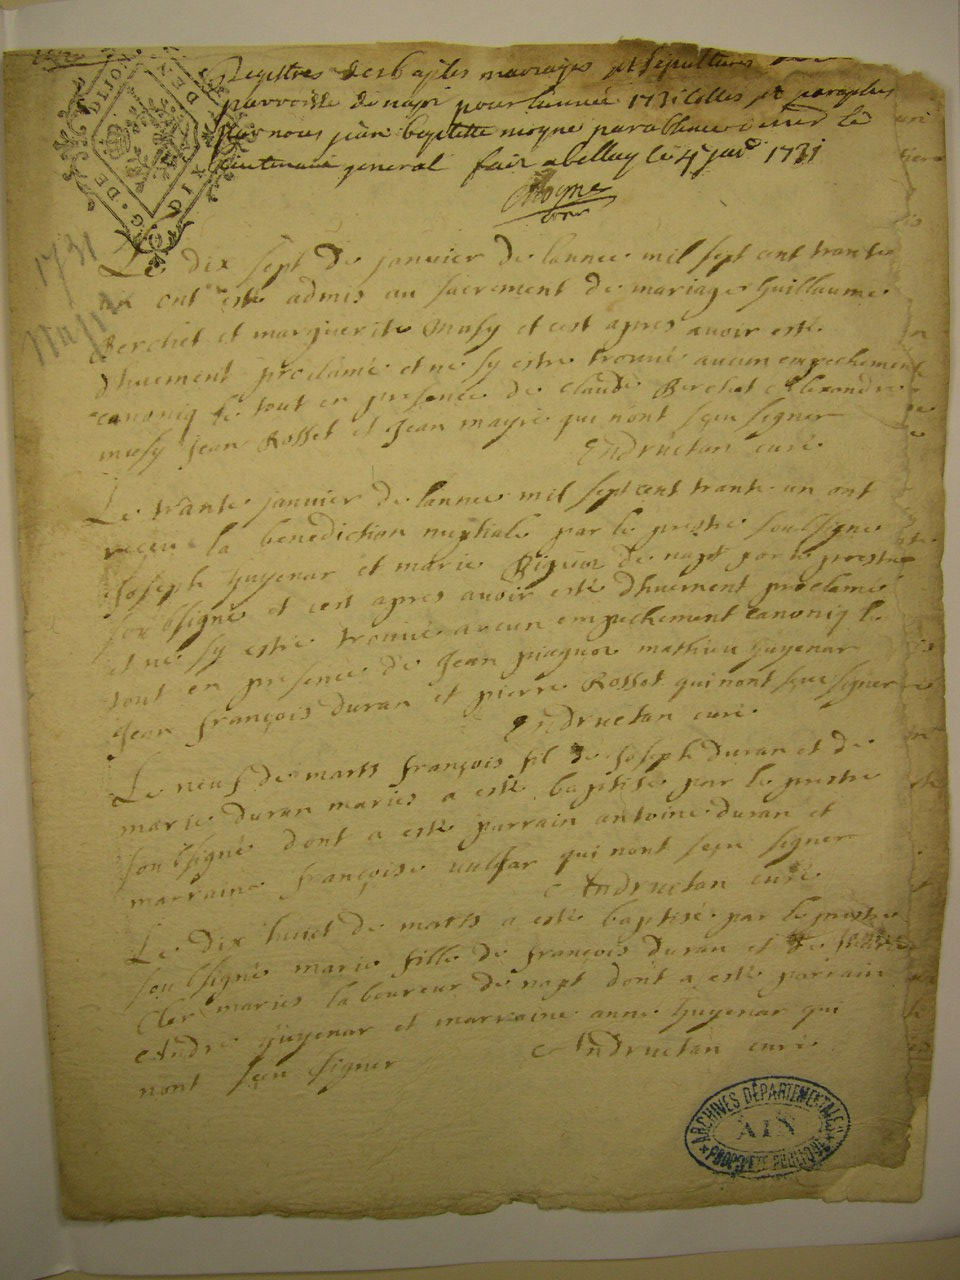 Registres des baptes mariages et sepultures de la
parroisse de napt pour lannée 1731 Cottes et paraphes
par nous jean baptiste moyne par ablence de mr le
lieutenant general fait a belley le 4 janr 1731
Moyne
1731
Napt
Le dix sept de janvier de lannee mil sept cent trante
un ont este admis au sacrement de mariage Guillaume
Berchet et marguerite musy et cest apres avoir esté
dhuement proclamé et ne sy estre trouvé aucun empechement
canoniq le tout en presence de Claude Berchet Alexandre
musy Jean Rosset et Jean mayre qui nont sceu signer
Andructan curé
Le trante janvier de lannee mil sept cent trante un ont
receu la benediction nuptiale par le prestre soubsigné
Joseph Guyenar et marie de napt par le prestre
soubsigné et cest apres avoir esté dhuement proclamé
et ne sy estre trouvé aucun empechement canoniq le
tout en presence de Jean mathieu Guyenar
Jean françois duran et pierre Rosset qui nont sceu signer
Andructan curé
Le neuf de marts françois fil de Joseph duran et de
marie duran maries a esté baptisé par le prestre
soubsigné dont a esté parrain antoine duran et
marraine françoise vulliar qui nont sceu signer
Andructan curé
Le dix huict de marts a esté baptisé par le prestre
soubsigné marie fille de françois duran et de
Cler maries laboureur de napt dont a esté parrain
Andre Guyenar et marraine anne Guyenar qui
nont sceu signer Andructan curé
ARCHIVES DÉPARTEMENTALES
AIN
PROPRIÉTÉ PUBLIQUE